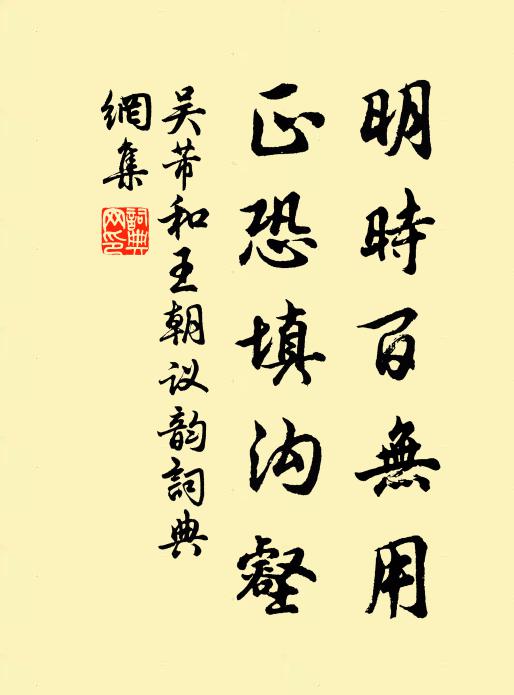 明時百無用
正恐填沟壑
吴芾和王朝议韵詞典
網集
詞典网印